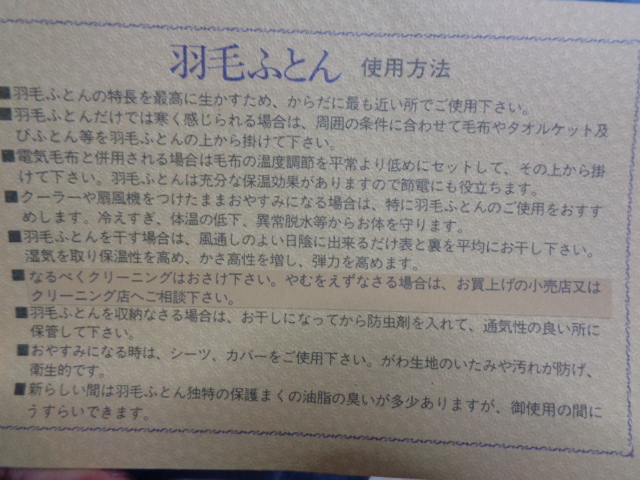 羽毛ふとん 使用方法
■羽毛ふとんの特長を最高に生かすため、からだに最も近い所でご使用下さい。
■羽毛ふとんだけでは寒く感じられる場合は、周囲の条件に合わせて毛布やタオルケット及
びふとん等を羽毛ふとんの上から掛けて下さい。
■電気毛布と併用される場合は毛布の温度調節を平常より低めにセットして、その上から掛
けて下さい。羽毛ふとんは充分な保温効果がありますので節電にも役立ちます。
■クーラーや扇風機をつけたままおやすみになる場合は、特に羽毛ふとんのご使用をおすす
めします。冷えすぎ、体温の低下、異常脱水等からお体を守ります。
■羽毛ふとんを干す場合は、風通しのよい日陰に出来るだけ表と裏を平均にお干し下さい。
湿気を取り保温性を高め、かさ高性を増し、弾力を高めます。
■なるべくクリーニングはおさけ下さい。やむをえずなさる場合は、お買上げの小売店又は
クリーニング店へご相談下さい。
■羽毛ふとんを収納なさる場合は、お干しになってから防虫剤を入れて、通気性の良い所に
保管して下さい。
■おやすみになる時は、シーツ、カバーをご使用下さい。がわ生地のいたみや汚れが防げ、
衛生的です。
■新らしい間は羽毛ふとん独特の保護まくの油脂の臭いが多少ありますが、御使用の間に
うすらいできます。